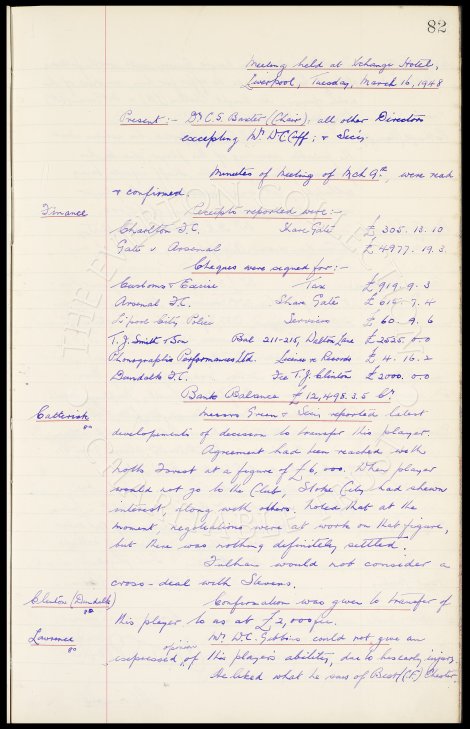 82
Meeting held at Xchange Hotel,
Liverpool, Tuesday, March 16, 1948
Present:- Dr. C.S. Baxter (Chair); all other Directors
excepting Mr. W.C. Cuff; & Secy.
Minutes of Meeting of Mch 9th, were read
& confirmed.
Finance
Receipts reported were:-
Charlton F.C. Share Gate £ 305. 13. 10
Gate v Arsenal £ 4977. 19. 3
Cheques were signed for:-
Customs & Excise Tax £ 919. 9. 3
Arsenal F.C. Share Gate £ 619. 7. 4
L'pool City Police Services £ 60. 9. 6
T.J. Smith & Son Bal 211-215, Walton Lane £ 2525. 0. 0
Phonographic Performances Ltd. Licence re Records £ 4. 16. 2
Dundalk F.C. Fee T.J. Clinton £ 2000. 0. 0
Bank Balance £ 12,498. 3. 5 Cr.
Catterick
Messrs Green & Secy. reported latest
developments of decision to transfer this player.
Agreement had been reached with
Notts Forest at a figure of £6,000. When player
would not go to the Club, Stoke City had shewn
interest, along with others. Noted that at the
moment, negotiations were at work on that figure,
but there was nothing definitely settled.
Fulham would not consider a
cross-deal with Stevens.
Clinton (Dundalk)
Confirmation was given to transfer of
this player to us at £2,000
Lawrence
Mr. D.C. Gibbins could not give an
opinion
expressed of this player's abilities, due to his early injury.
He liked what he saw of Best (CF) Chester.
THE EVERTON COLLECTION